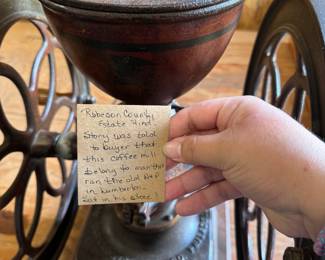 Robeson County
Estate Find
Story was told
to buyer that
this coffee mill
belong to man that
ran the old A&P
in Lumberton.
Sat in his store!